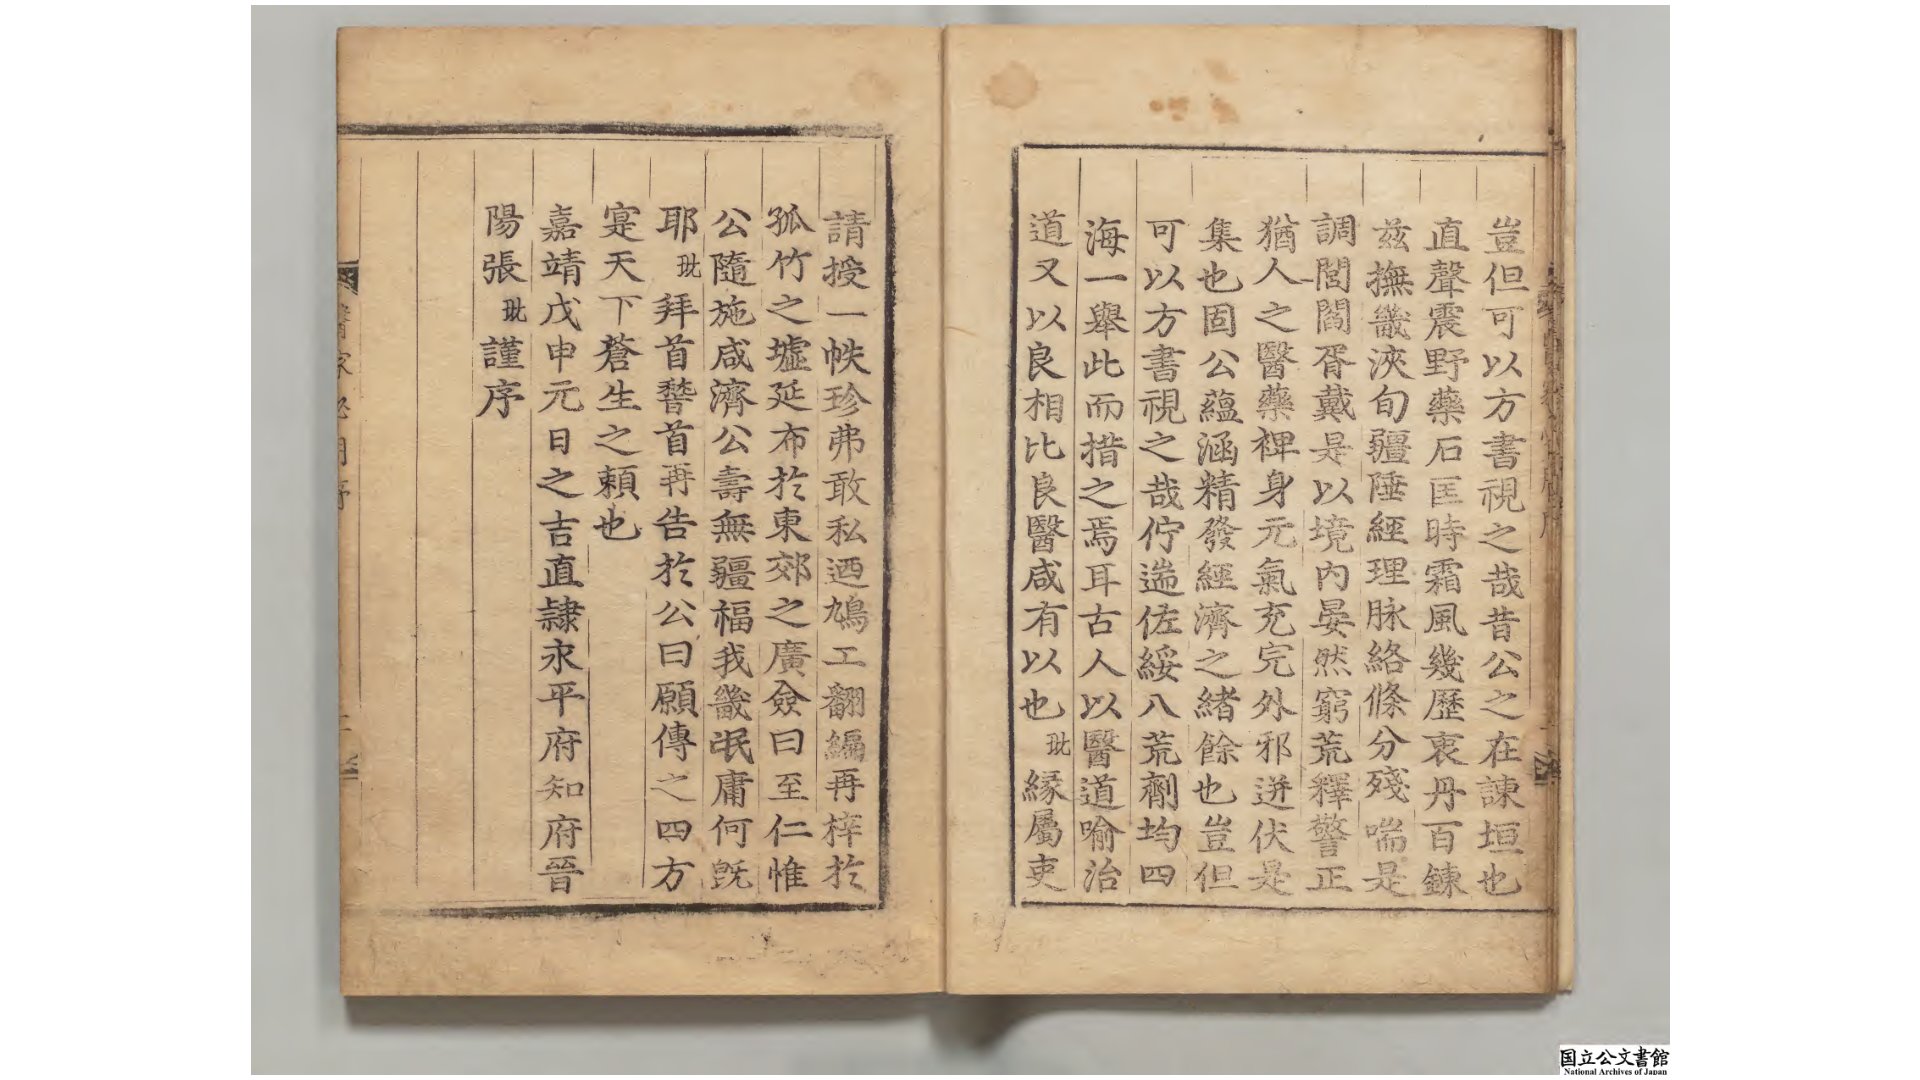 豈但可以方書視之哉昔公之在諫垣也
直聲震野藥石匡時霜風幾歷衷丹百鍊
兹撫畿浹旬疆陲經理脉絡條分殘喘是
調閭閻胥戴是以境內晏然窮荒釋警正
猶人之醫藥裨身元氣充完外邪迸伏是
集也固公蘊涵精發經濟之緒餘也豈但
可以方書視之哉佇遄佐綏八荒劑均四
海一舉此而措之焉耳古人以醫道喻治
道又以良相比良醫咸有以也玭緣屬吏
請授一帙珍弗敢私迺鳩工翻編再梓於
孤竹之墟延布於東郊之廣僉曰至仁惟
公隨施咸濟公壽無疆福我畿氓庸何旣
耶玭拜首㬱首再告於公曰願傳之四方
寔天下蒼生之頼也
嘉靖戊申元日之吉直隷永平府知府晉
陽張玭謹序
国立公文書館
National Archives of Japan